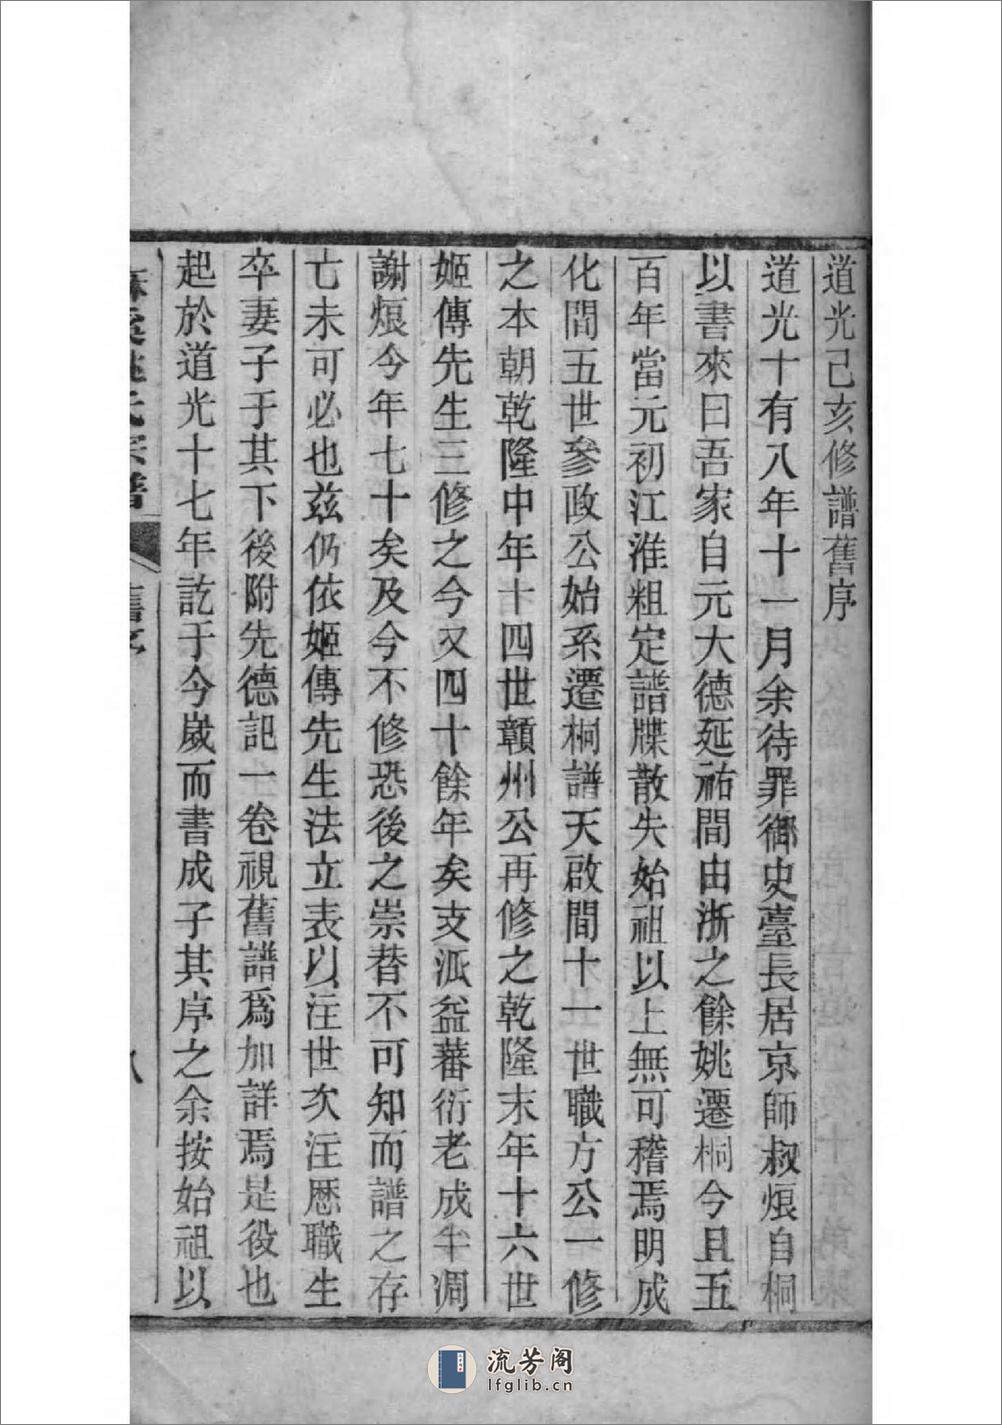 道光己亥修譜舊序
道光十有八年十一月余待罪御史臺長居京師叔烺自桐
以書來曰吾家自元大德延祐間由浙之餘姚遷桐今且五
百年當元初江淮粗定譜牒散失始祖以上無可稽焉明成
化間五世參政公始系遷桐譜天啟間十一世職方公一修
之本朝乾隆中年十四世贛州公再修之乾隆末年十六世
姬傳先生三修之今又四十餘年矣支派益蕃衍老成半凋
謝烺今年七十矣及今不修恐後之崇替不可知而譜之存
亡未可必也茲仍依姬傳先生法立表以注世次注歷職生
卒妻子于其下後附先德記一卷視舊譜爲加詳焉是役也
起於道光十七年訖于今嵗而書成子其序之余按始祖以
麻溪姚氏宗譜 舊序 八
流芳阁
lfglib.cn